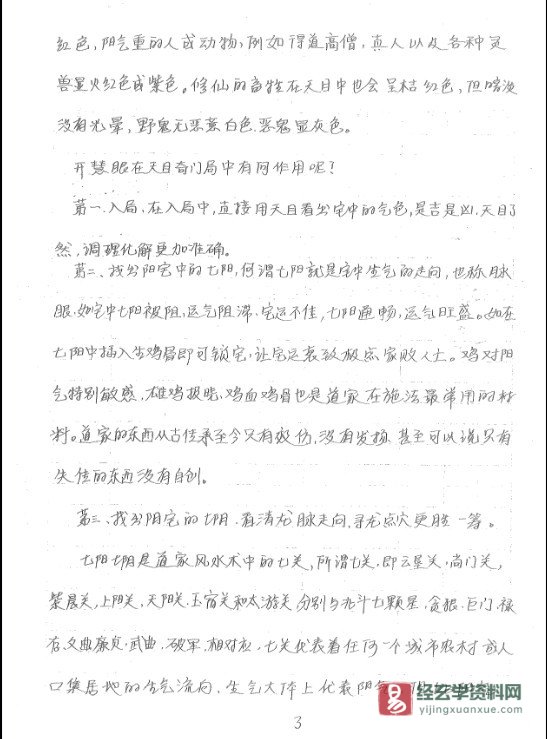 红色，阳气重的人或动物，例如得道高僧，真人以及各种灵
兽呈火红色或紫色。修仙的畜牲在天目中也会呈桔红色，但暗淡
没有光晕，野鬼无恶意白色.恶鬼显灰色。
开慧眼在天目奇门局中有何作用呢？
第一.入局、在入局中，直接用天目看出宅中的气色，是吉是凶.天目了
然，调理化解更加准确。
第二、找出阳宅中的七阳，何谓七阳就是宅中生气的走向，也称脉
眼.如宅中七阳被阻，运气阻滞.宅运不佳，七阳通畅，运气旺盛。如在
七阳中插入生鸡眉即可锁宅，让宅运衰败极点家败人亡。鸡对阳
气特别敏感，雄鸡报晓，鸡血鸡眉也是道家在施法最常用的材
料。道家的东西从古传承至今只有效仿，没有发扬.甚至可以说只有
失传的东西没有自创。
第三、找出阴宅的七阴.看清龙脉走向.寻龙点穴更胜一筹。
七阳七阴是道家风水术中的七关，所谓七关.即云星关.尚门关，
紫晨关，上阳关，天阳关.玉宿关和太游关.分别与北斗七颗星，贪狼.巨门.禄
存.文曲廉贞.武曲.破军.相对应，七关代表着任何一个城市农村或人
口集居地的生气流向.生气大体上代表阴气
3
经玄学资料网
yijingxuanxue.com